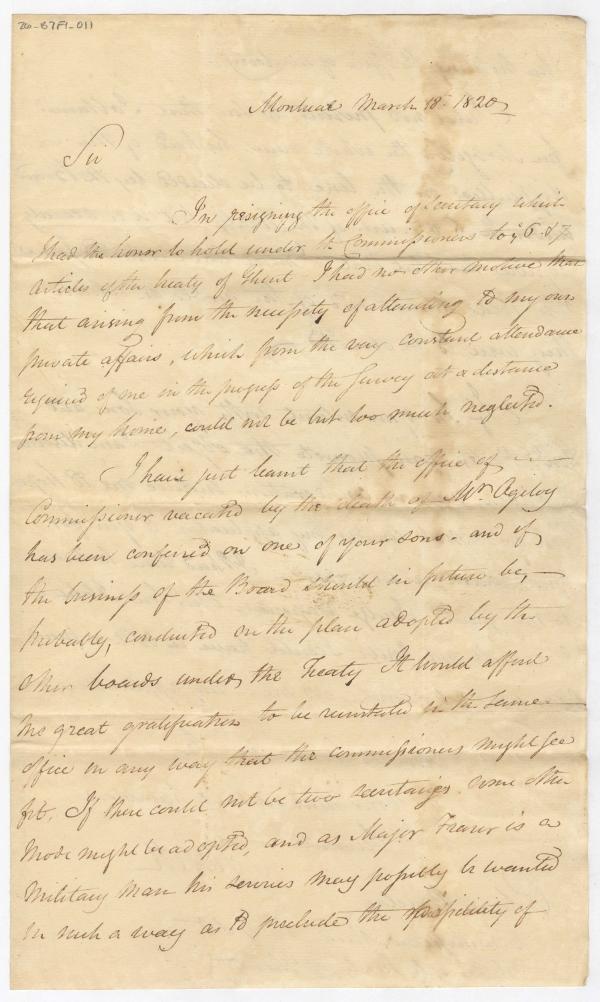 20-87F1-011
Montreal March 18th 1820
Sir
In resigning the office of Secretary which
I had the honor to hold under the Commissioners to ye 6 & 7
Articles of the treaty of Ghent I had no other motive than
that arising from the necessity of attending to my own
private affairs, which from the very constant attendance
required of me in the progress of the Survey at a distance
from my home, could not be but too much neglected.
I have just learnt that the office of
Commissioner vacated by the death of Mr. Ogilvy
has been conferred on one of your sons - and if
the business of the Board should in future be,
probably, conducted on the plan adopted by the
other boards under the Treaty It would afford
me great gratification to be reinstated in the same
office in any way that the commissioners might see
fit. If there could not be two secretaries some other
mode might be adopted, and as Major Fraser is a
Military man his services may possibly be wanted
in such a way as to preclude the possibility of